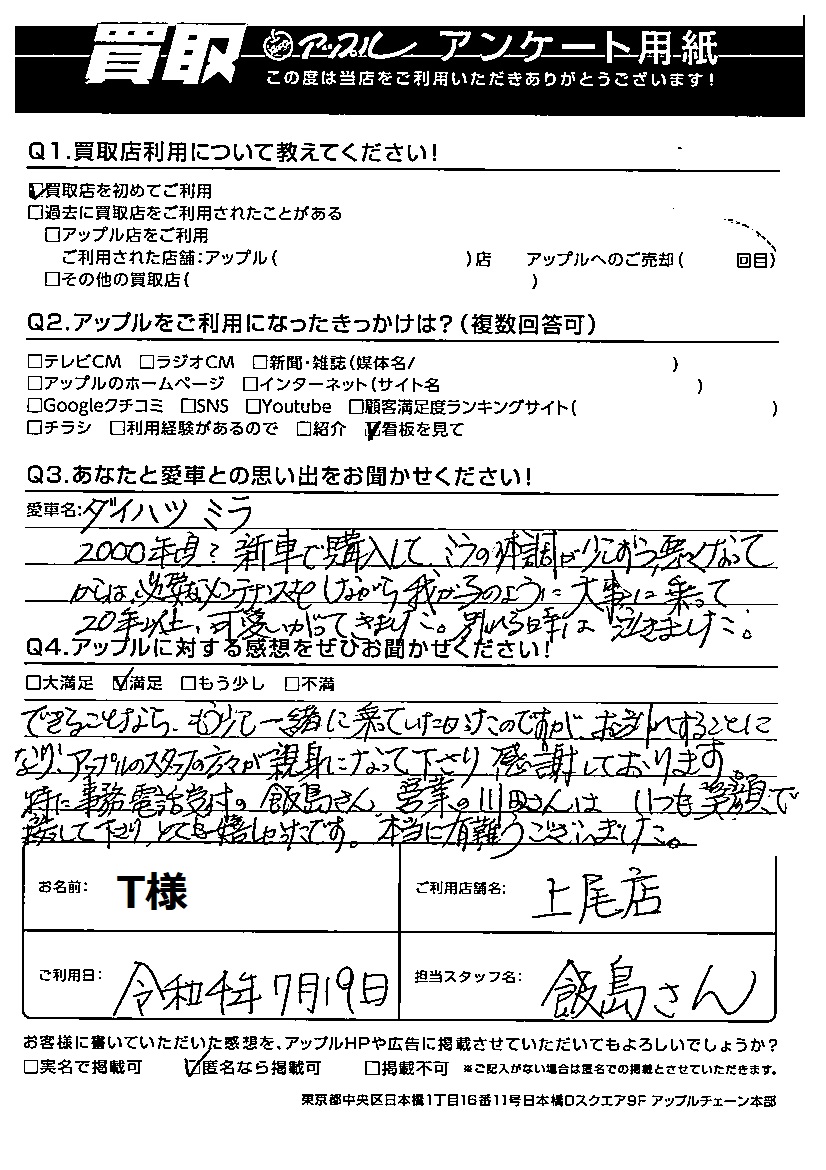 買取 アップル アンケート用紙
この度は当店をご利用いただきありがとうございます!
Q1.買取店利用について教えてください!
☑買取店を初めてご利用
□過去に買取店をご利用されたことがある
□アップル店をご利用
ご利用された店舗:アップル( )店 アップルへのご売却( 回目)
□その他の買取店( )
Q2.アップルをご利用になったきっかけは?(複数回答可)
□テレビCM □ラジオCM □新聞・雑誌(媒体名/ )
□アップルのホームページ □インターネット(サイト名 )
□Googleクチコミ □SNS □Youtube □顧客満足度ランキングサイト( )
□チラシ □利用経験があるので □紹介 ☑看板を見て
Q3.あなたと愛車との思い出をお聞かせください!
愛車名:ダイハツ ミラ
2000年頃? 新車で購入して、ミラの体調が少しずつ悪くなって
からは、必要なメンテナンスをしながら我が子のように大事に乗って
20年以上、可愛いがってきました。別れる時は泣きました。
Q4.アップルに対する感想をぜひお聞かせください!
□大満足 ☑満足 □もう少し □不満
できることなら、もう少し一緒に乗っていたかったのですが、お別れすることに
なり、アップルのスタッフの方々が親身になって下さり感謝しております
特に事務電話受付の飯島さん 営業の川田さんは いつも笑顔で
接して下さり、とても嬉しかったです。本当に有難うございました。
お名前: T様 ご利用店舗名: 上尾店
ご利用日: 令和4年7月19日 担当スタッフ名: 飯島さん
お客様に書いていただいた感想を、アップルHPや広告に掲載させていただいてもよろしいでしょうか?
□実名で掲載可 ☑匿名なら掲載可 □掲載不可 ※ご記入がない場合は匿名での掲載とさせていただきます。
東京都中央区日本橋1丁目16番11号日本橋Dスクエア9F アップルチェーン本部